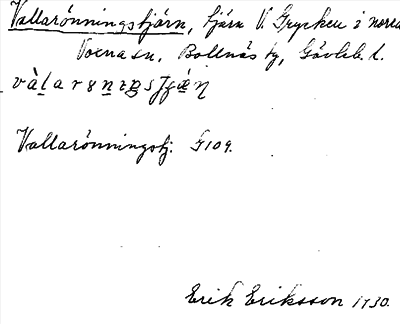 Vallarönningstjärn, tjärn V. Grycken i norra
Voxna sn, Bollnäs tg, Gävleb. l.
Vallarönningstj. G109.
Erik Eriksson 1930.